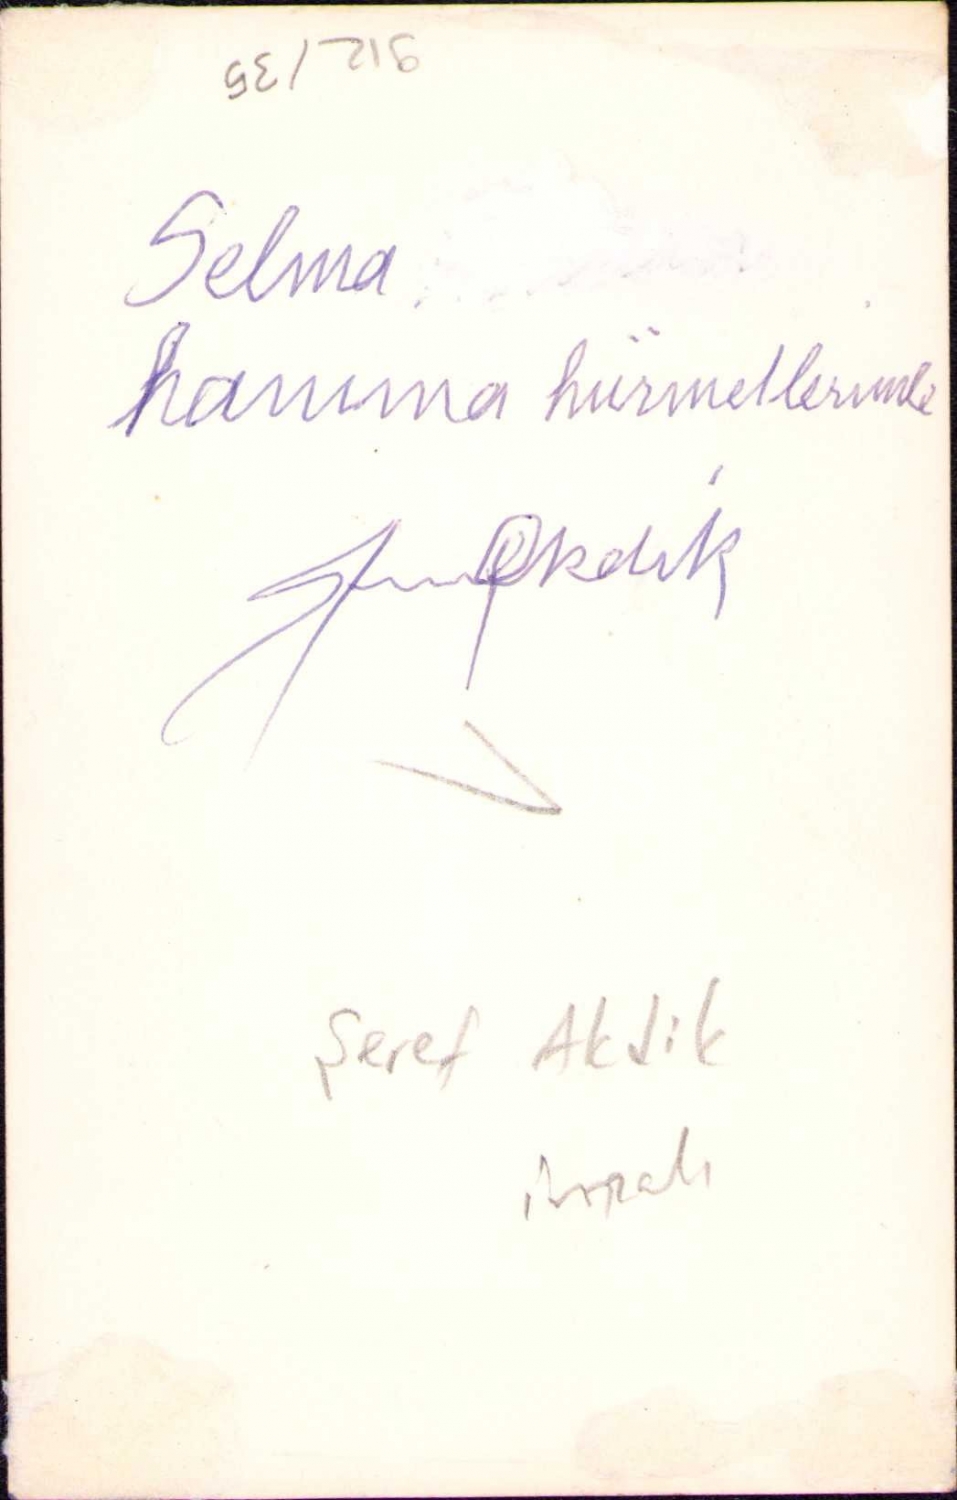 912/35
Selma
hanıma hürmetlerimle
Akdik
Şeref Akdik
imzalı